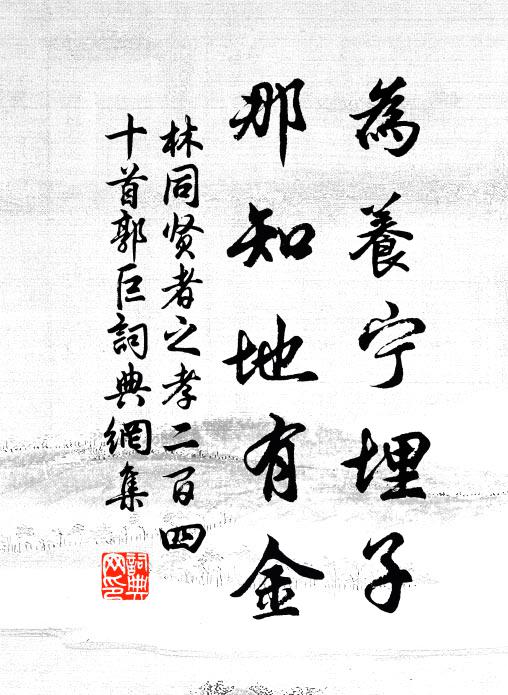 為養宁埋子
那知地有金
林同贤者之孝二百四
十首郭巨詞典網集
詞典
网印